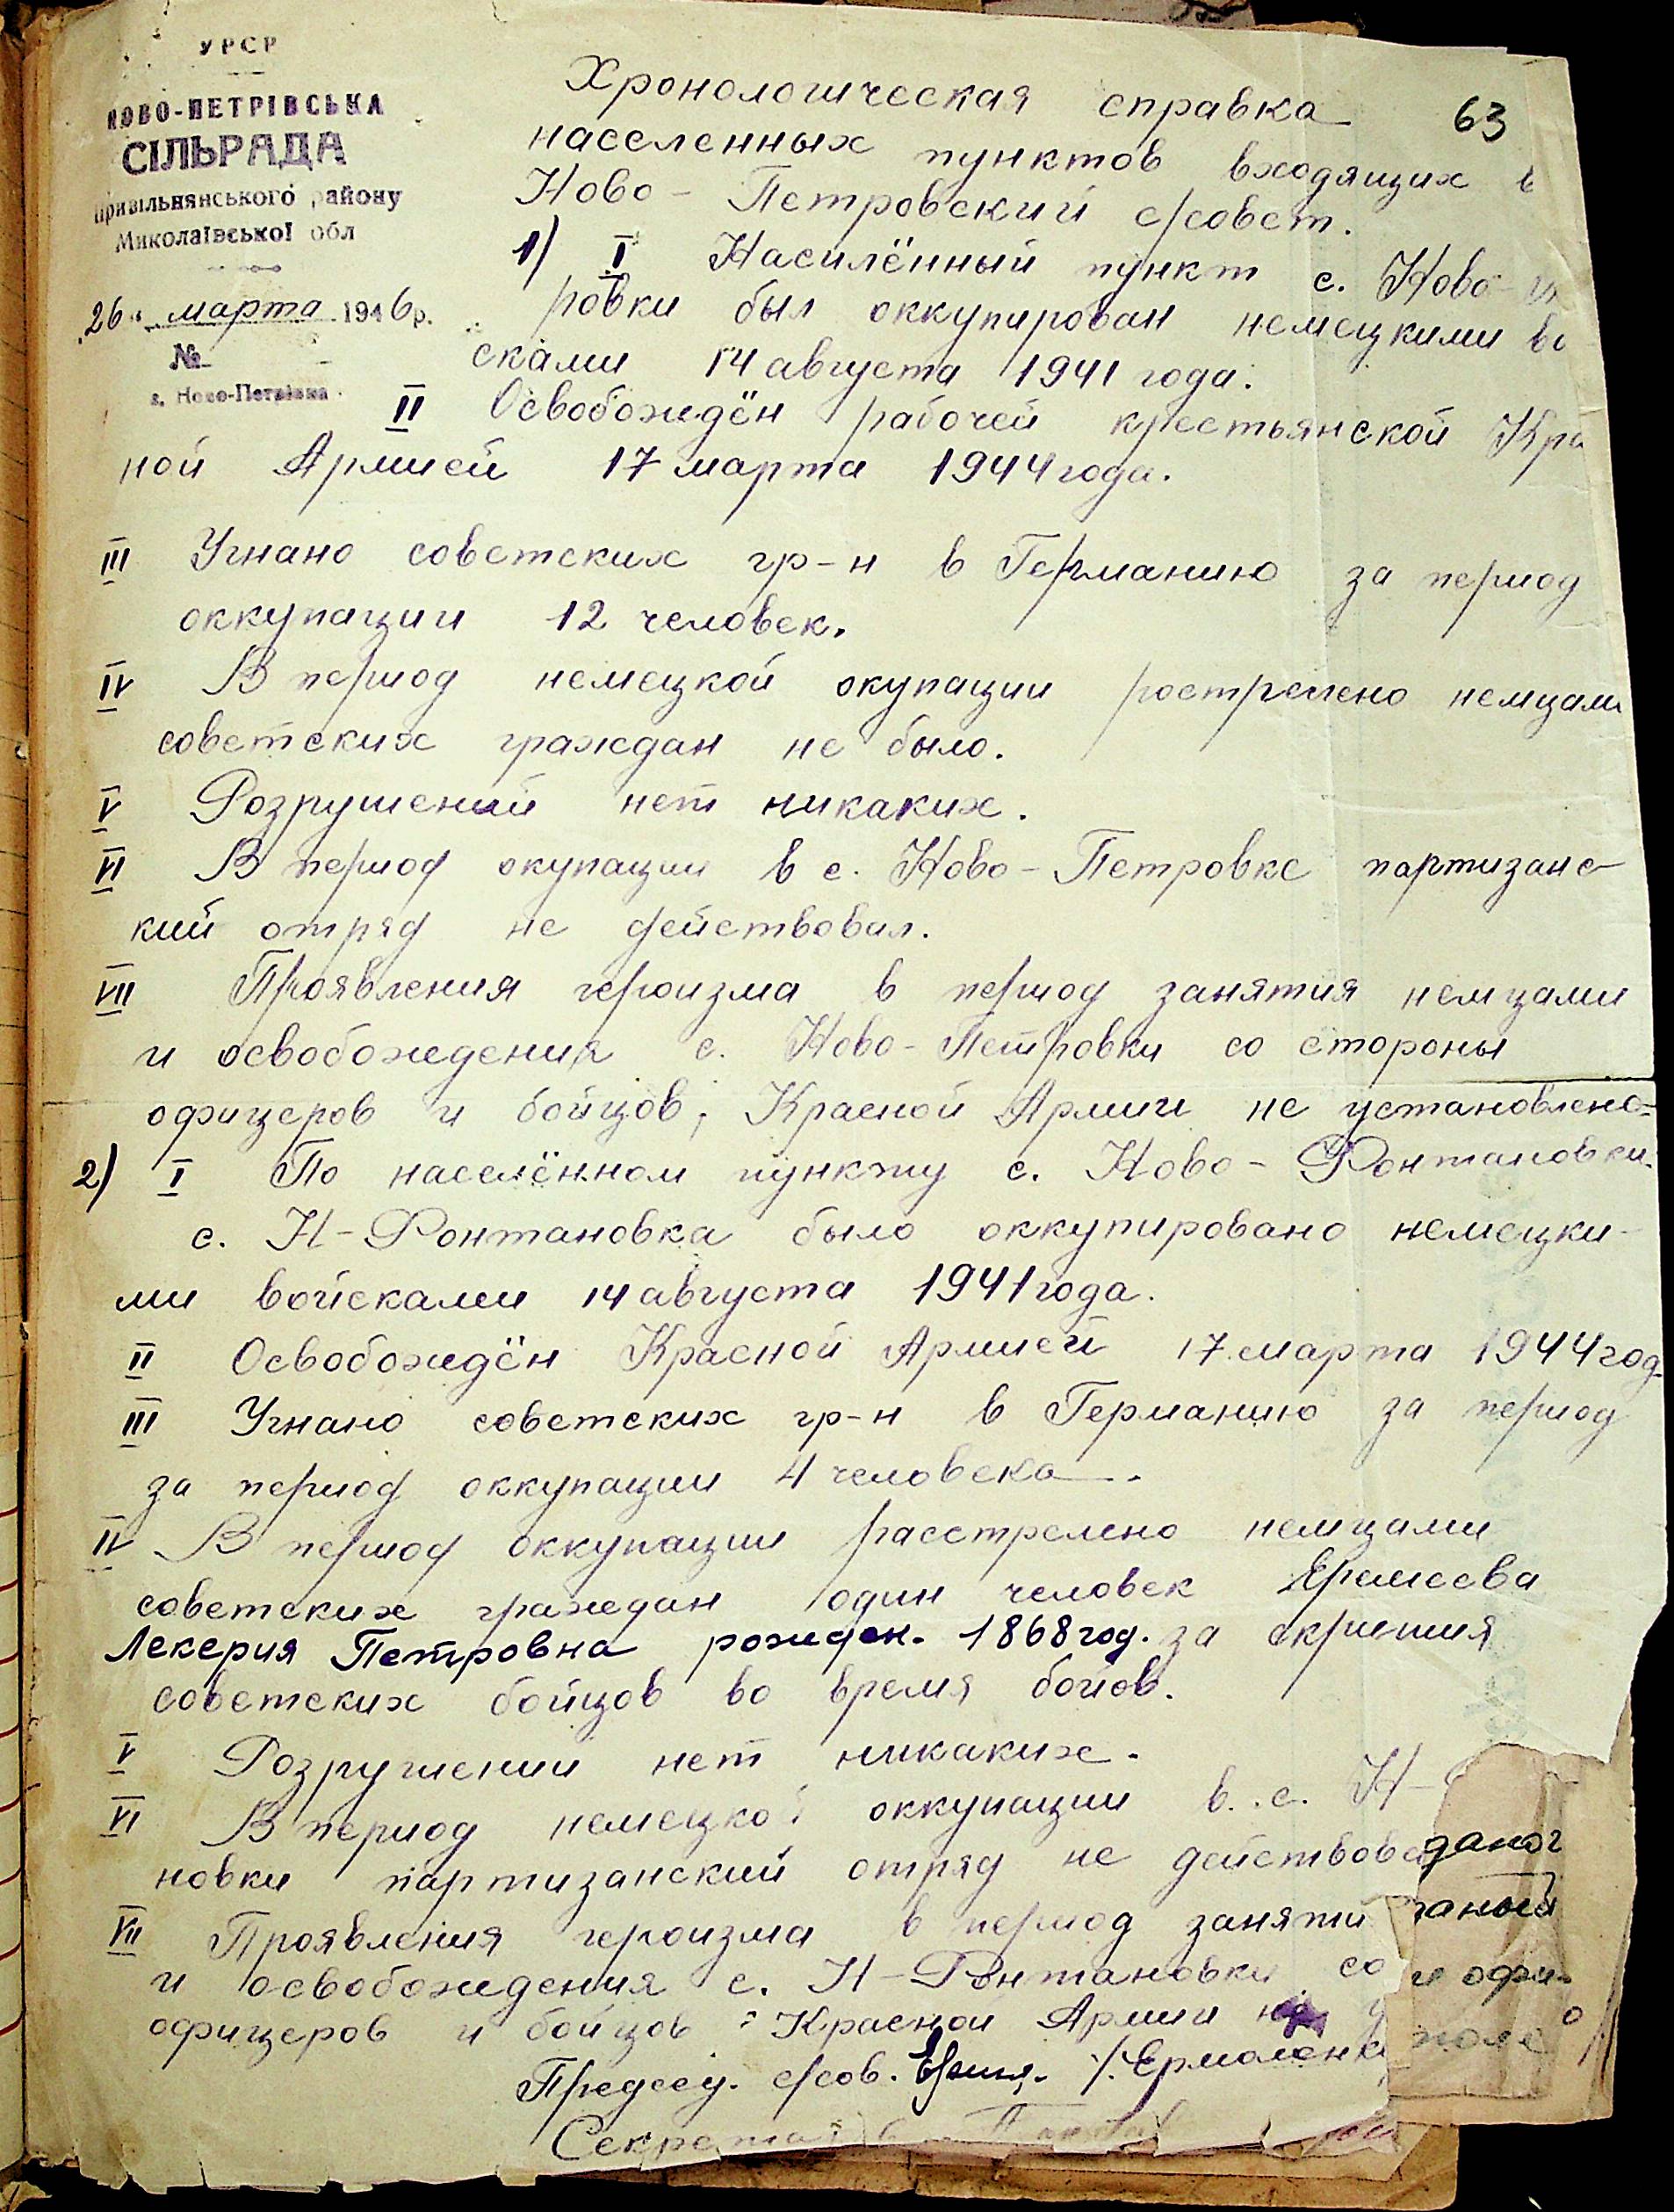 УРСР
НОВО-ПЕТРІВСЬКА
СІЛЬРАДА
Привільнянського району
Миколаївської обл
26 " марта 1946 р.
№
с. Ново-Петрівка
63
Хронологическая справка
населенных пунктов входящих в
Ново-Петровский с/совет.
1) I Насилённый пункт с. Ново-
ровки был оккупирован немецкими во
сками 14 августа 1941 года.
II Освобождён рабочей крестьянской Кра
ной Армией 17 марта 1944 года.
III Угнано советских гр-н в Германию за период
оккупации 12 человек.
IV В период немецкой окупации рострелено немцами
советских граждан не было.
V Розрушений нет никаких.
VI В период окупации в с. Ново-Петровке партизанс-
кий отряд не действовал.
VII Проявления героизма в период занятия немцами
и освобождения с. Ново-Петровки со стороны
офицеров и бойцов, Красной Армии не установлено.
2) I По населённом пункту с. Ново-Фонтановки.
с. Н-Фонтановка было оккупировано немецки-
ми войсками 14 августа 1941 года.
II Освобождён Красной Армией 17 марта 1944 год
III Угнано советских гр-н в Германию за период
за период оккупации 4 человека.
IV В период оккупации расстрелено немцами
советских граждан один человек Еремеева
Лекерия Петровна рожден. 1868 год. за скрытия
советских бойцов во время бойов.
V Розрушении нет никаких.
VI В период немецкой оккупации в. с. Н-
новки партизанский отряд не действова
VII Проявления героизма в период заняти
и освобождения с. Н-Фонтановки со
офицеров и бойцов Красной Армии не
Председ. с/сов. /. Ермоленк
Секретарь